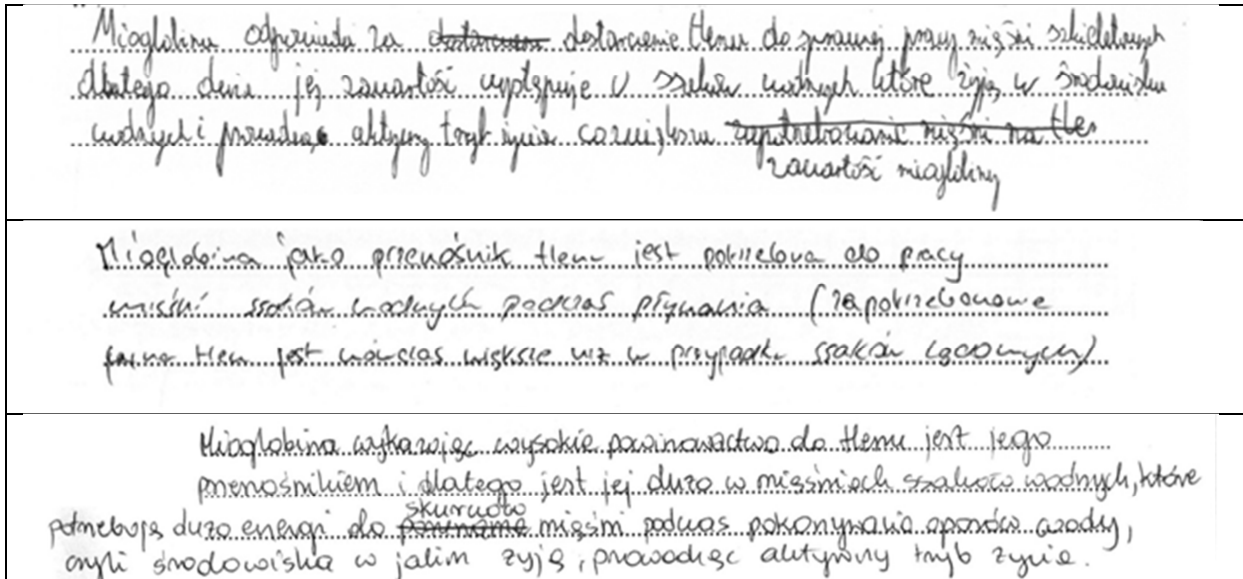 Mioglobina odpowiada za dostarczenie tlenu do sprawnej pracy mięśni szkieletowych
dlatego duża jej zawartość występuje u ssaków wodnych które żyją w środowisku
wodnych i prowadzą aktywny tryb życia zapotrzebowanie mięśni na tlen
zawartość mioglobiny
Mioglobina jako przenośnik tlenu jest potrzebna do pracy
mięśni ssaków wodnych podczas pływania (zapotrzebowanie
na tlen jest wówczas większe niż w przypadku ssaków lądowych)
Mioglobina wykazując wysokie powinowactwo do tlenu jest jego
przenośnikiem i dlatego jest jej dużo w mięśniach ssaków wodnych, które
skurczów
potrzebują dużo energi do mięśni podczas pokonywania oporów wody,
czyli środowiska w jakim żyją, prowadząc aktywny tryb życia.